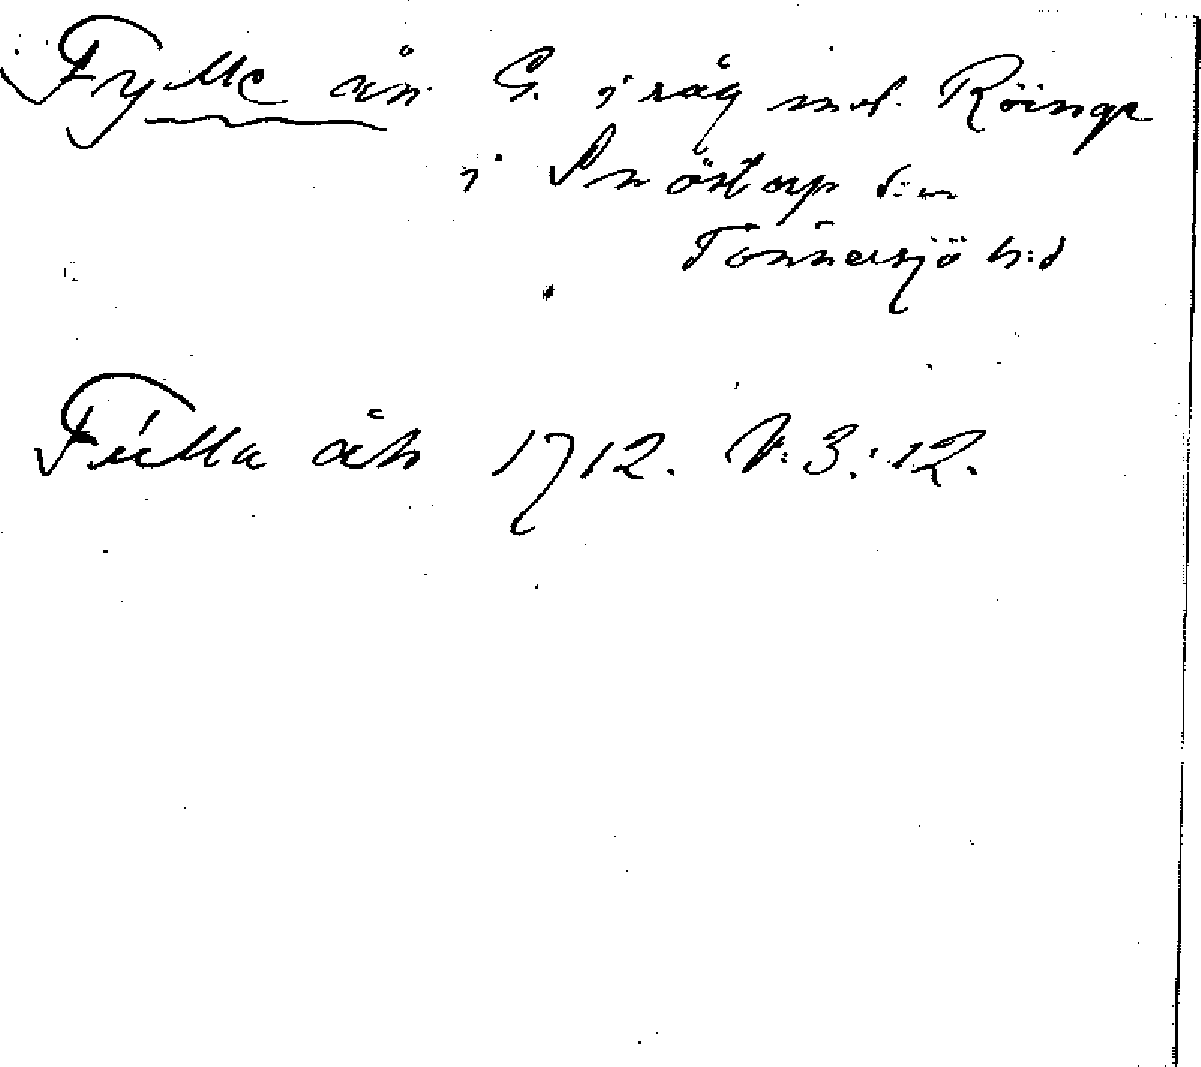 Fylle ån. G. i råg mot Röinge
i Snöstorp s:n
Tönnersjö h:d
Fülla åh 1712. V: 3: 12.